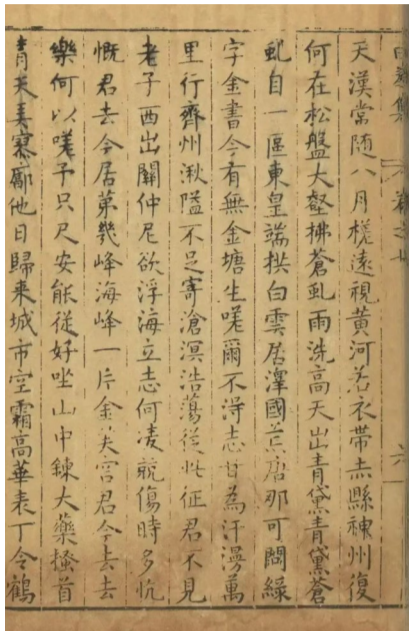 卷之 六
天漢常随八月槎遠視黃河若衣帶赤縣神州復
何在松盤大壑拂蒼虬雨洗高天出青黛青黛蒼
虬自一區東皇端拱白雲居澤國荒唐那可問綠
字金書今有無金塘生嗟爾不得志甘為汗漫萬
里行齊州湫隘不足寄滄溟浩蕩從此征君不見
老子西出關仲尼欲浮海立志何凌兢傷時多忼
慨君去今居第幾峰海峰一片金芙容君今去去
樂何以嗟予只尺安能從好坐山中鍊大藥搔首
青天美寥廓他日歸來城市空霜高華表丁令鶴